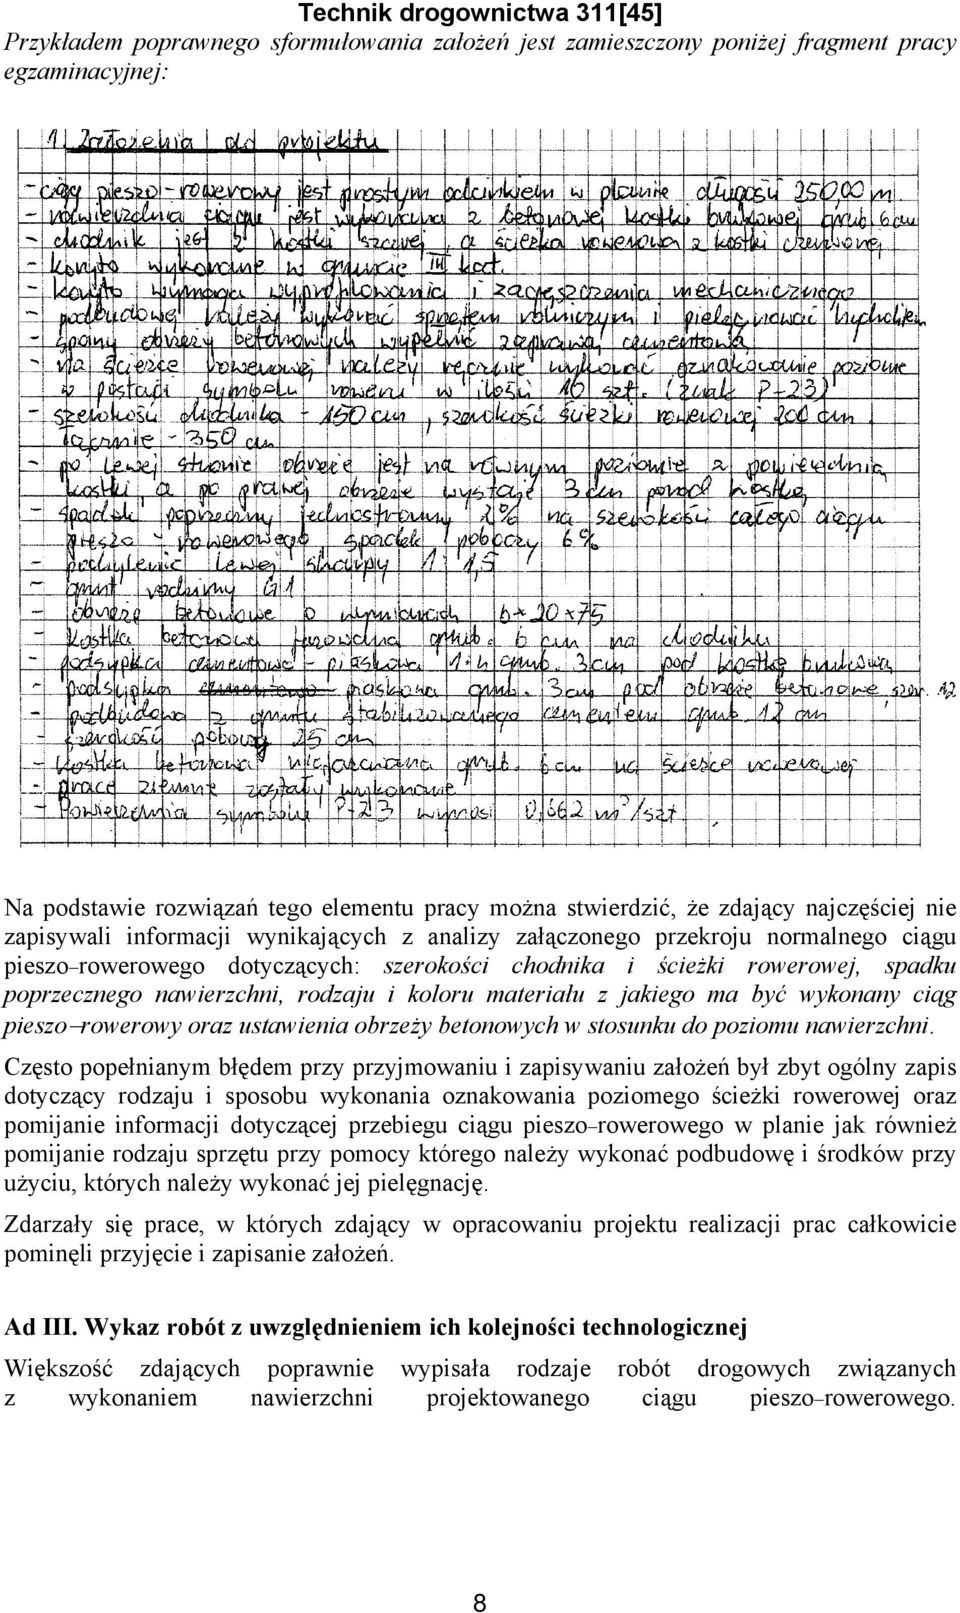 Technik drogownictwa 311[45]
Przykładem poprawnego sformułowania założeń jest zamieszczony poniżej fragment pracy
egzaminacyjnej:
1. Założenia do projektu
- ciąg pieszo-rowerowy jest prostym odcinkiem w planie długości 250,00 m.
- nawierzchnia ciągu jest wykonana z betonowej kostki brukowej grub. 6 cm
- chodnik jest z kostki szarej, a ścieżka rowerowa z kostki czerwonej
- koryto wykonane w gruncie III kat.
- koryto wymaga wyprofilowania i zagęszczenia mechanicznego
- podbudowę należy wykonać sprzętem rolniczym i pielęgnować
- spoiny obrzeży betonowych wypełnić zaprawą cementową
- na ścieżce rowerowej należy ręcznie wykonać oznakowanie poziome
w postaci symbolu roweru w ilości 10 szt. (znak P-23)
- szerokość chodnika - 150 cm, szerokość ścieżki rowerowej 200 cm
łącznie - 350 cm
- po lewej stronie obrzeże jest na równym poziomie z powierzchnią
kostki, a po prawej obrzeże wystaje 3 cm ponad kostkę
- spadek poprzeczny jednostronny 2% na szerokości całego ciągu
pieszo-rowerowego, spadek poboczy 6%
- pochylenie lewej skarpy 1:1,5
- grunt rodzimy G1
- obrzeże betonowe o wymiarach 6×20×75
- kostka betonowa grub. 6 cm na chodniku
- podsypka cementowo-piaskowa 1:4 grub. 3cm pod kostkę brukową
- podsypka piaskowa grub. 3cm pod obrzeże betonowe, szer. 12
- podbudowa z gruntu stabilizowanego cementem grub. 12 cm
- szerokość pobocy 25 cm
- kostka betonowa grub. 6 cm na ścieżce rowerowej
- prace ziemne zostały wykonane
- Powierzchnia symbolu P-23 wynosi 0,662 m²/szt.
Na podstawie rozwiązań tego elementu pracy można stwierdzić, że zdający najczęściej nie
zapisywali informacji wynikających z analizy załączonego przekroju normalnego ciągu
pieszo-rowerowego dotyczących: szerokości chodnika i ścieżki rowerowej, spadku
poprzecznego nawierzchni, rodzaju i koloru materiału z jakiego ma być wykonany ciąg
pieszo–rowerowy oraz ustawienia obrzeży betonowych w stosunku do poziomu nawierzchni.
Często popełnianym błędem przy przyjmowaniu i zapisywaniu założeń był zbyt ogólny zapis
dotyczący rodzaju i sposobu wykonania oznakowania poziomego ścieżki rowerowej oraz
pomijanie informacji dotyczącej przebiegu ciągu pieszo-rowerowego w planie jak również
pomijanie rodzaju sprzętu przy pomocy którego należy wykonać podbudowę i środków przy
użyciu, których należy wykonać jej pielęgnację.
Zdarzały się prace, w których zdający w opracowaniu projektu realizacji prac całkowicie
pominęli przyjęcie i zapisanie założeń.
Ad III. Wykaz robót z uwzględnieniem ich kolejności technologicznej
Większość zdających poprawnie wypisała rodzaje robót drogowych związanych
z wykonaniem nawierzchni projektowanego ciągu pieszo-rowerowego.
8